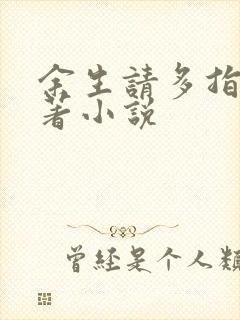 余生請多指
著小說
曾經是个人類